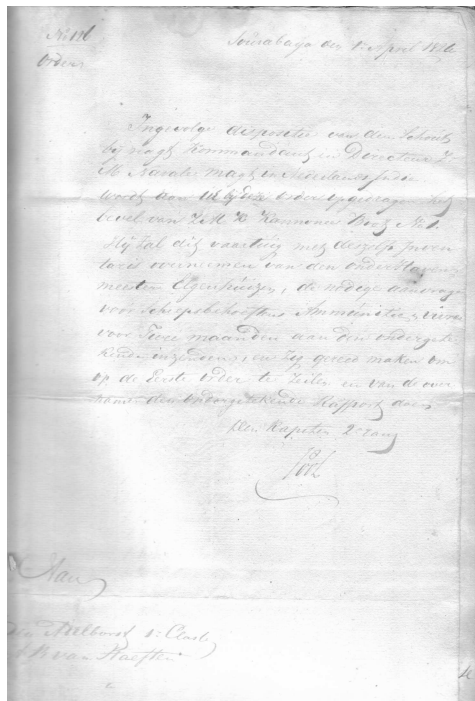 No 116
Sourabaya den 1 April 1826
Order
Ingevolge dispositie van den Schout
bij nagt Kommandant en Directeur Z.
M. Navale magt in Nederlands Indie
wordt aan UEd. opgedragen het
bevel van Z M Kannonneer Boot No 1.
Hij zal dit vaartuig met deszelfs Inven
taris overneemen van den onder Haven
meester Elgenhuizen, de nodige aanvrage
voor Scheepsbehoeftens Ammunitie, vivres
voor Twee maanden aan den onderget
kenden inzenden, en zig gereed maken om
op de Eerste order te Zeilen en van de over
name den ondergetekende Rapport doen
Den Kapitein 2e rang
Aan
Adelborst 1e Classe
van Haeften